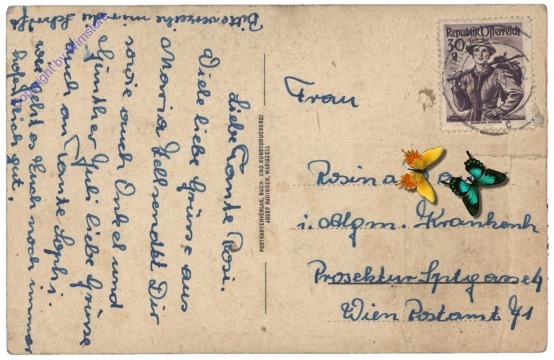 Liebe Tante Rosi.
Viele liebe Grüsse aus
Maria Zell sendet Dir
sowie auch Onkel und
Günther Juli liebe Grüsse
auch an Tante Sophi.
wie geht es Euch noch immer
hoffentlich gut.
Bitte verzeihe mir die Schrift
Copyright by
POSTKARTENVERLAG, BUCH- UND KUNSTDRUCKEREI
JOSEF MARIAZELL
Republik Österreich
30 g
Frau
Rosina
i. Allgm. Krankenh
Prosektur Sptgasse 4
Wien Postamt 71